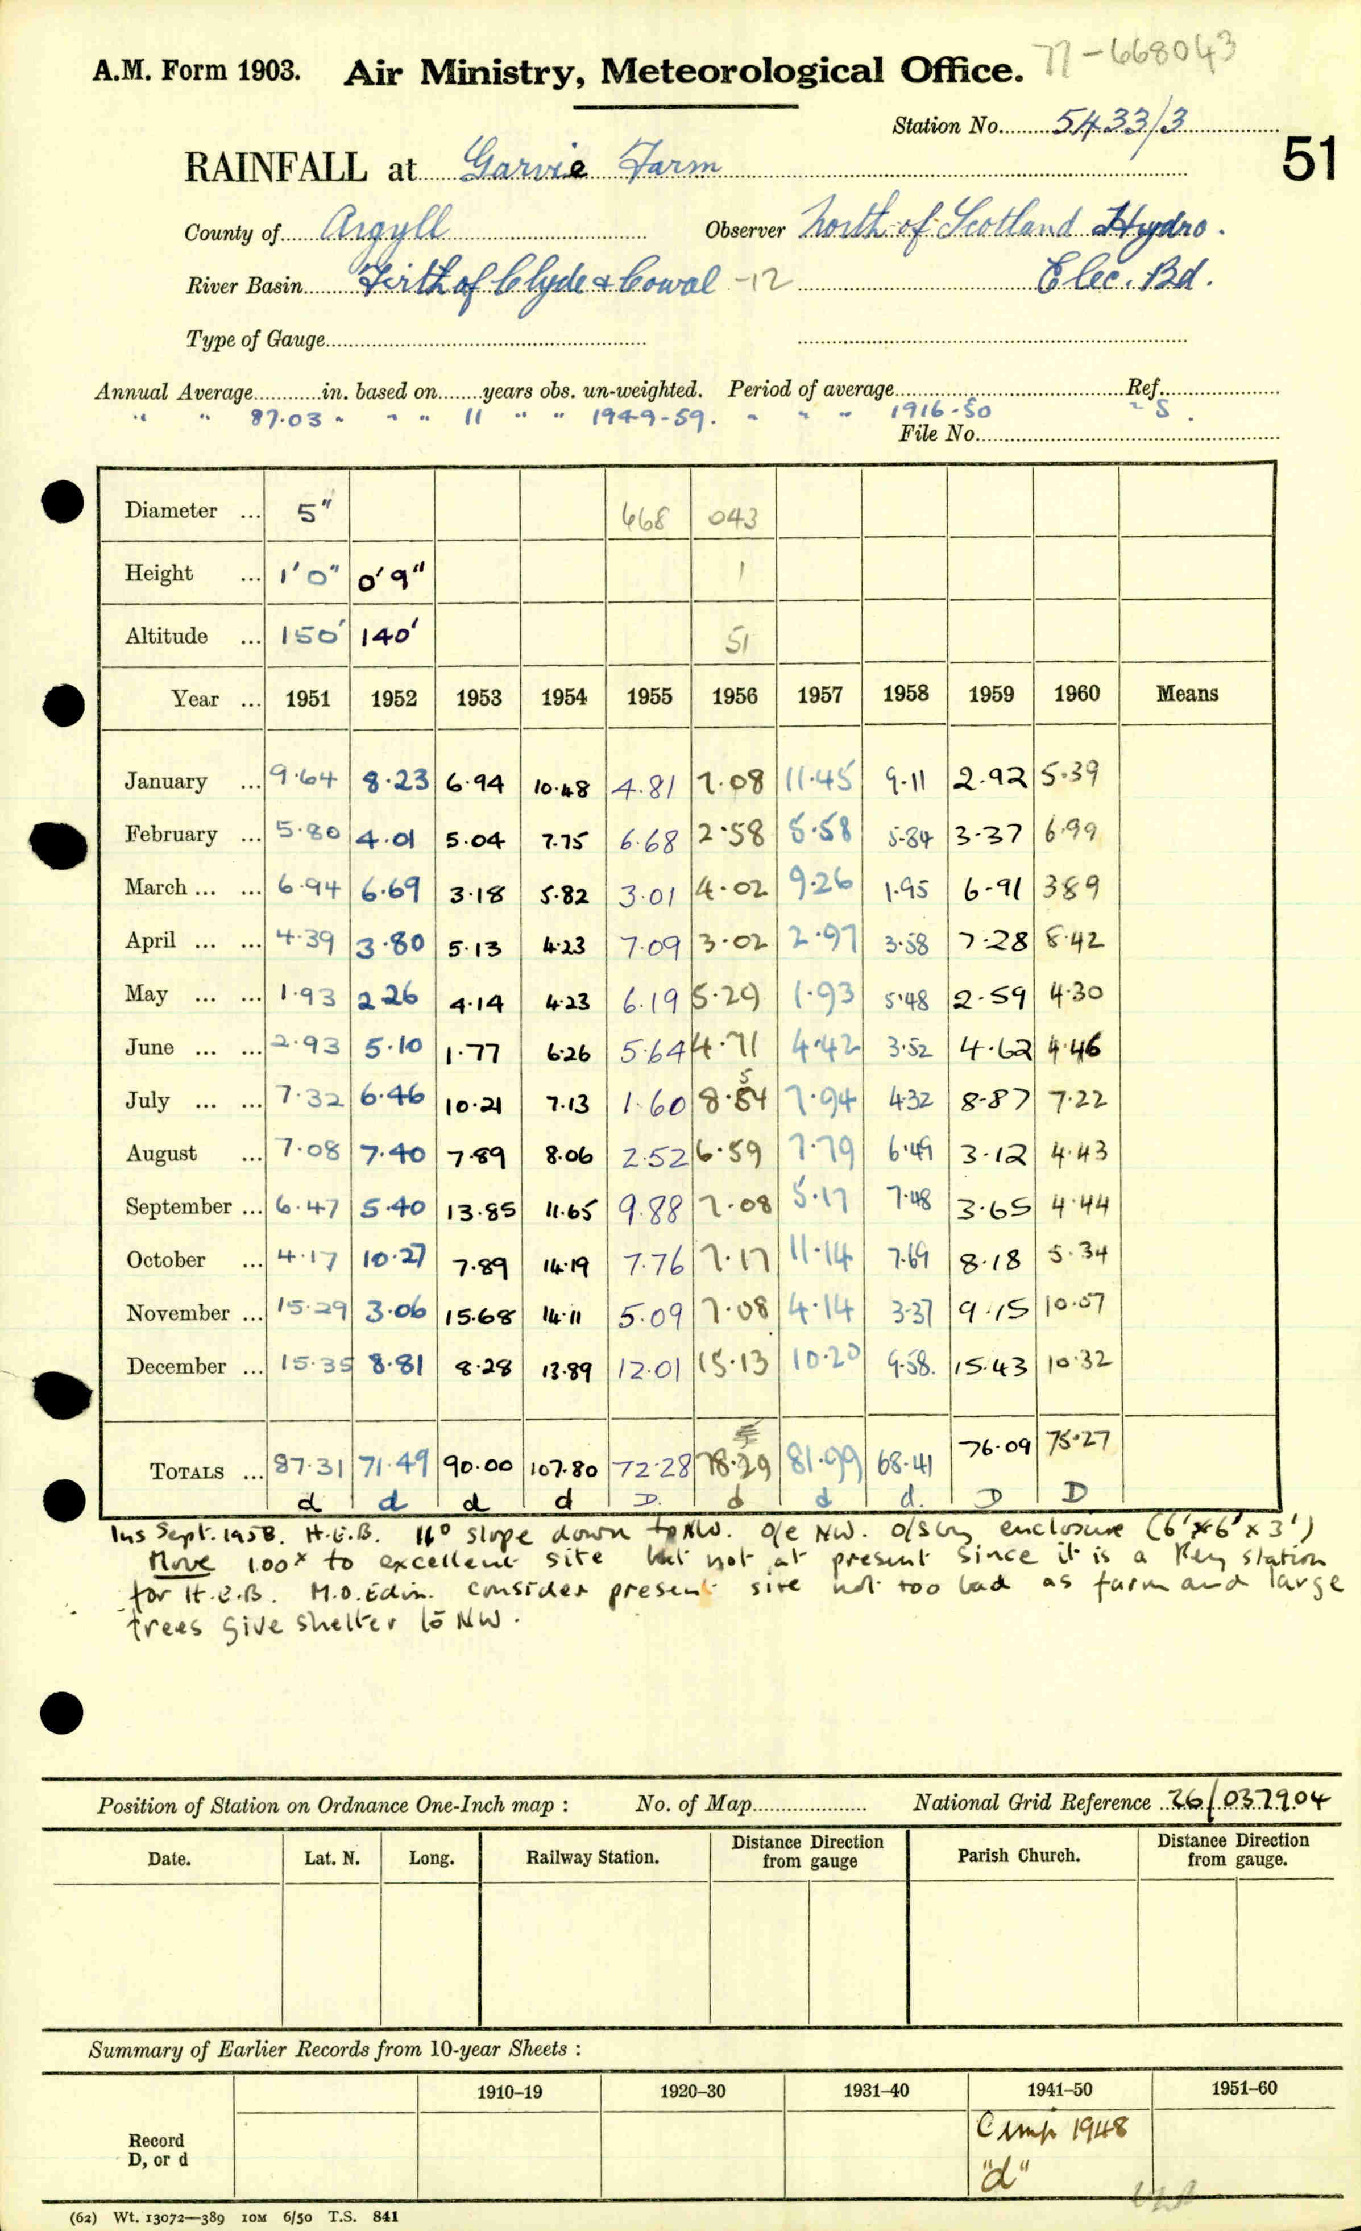 77-668043
A.M. Form 1903. Air Ministry, Meteorological Office.
Station No. 5433/3
51
RAINFALL at Garvie Farm
County of Argyll Observer North of Scotland Hydro.
River Basin Firth of Clyde & Cowal -12 Elec. Bd.
Type of Gauge
Annual Average in. based on years obs. un-weighted. Period of average Ref.
" " 87.03 " " " 11 " " 1949-59. " " " 1916-50 " S.
File No.
Diameter ... 5" 668 043
Height ... 1'0" 0'9" 1
Altitude ... 150' 140' 51
Year ... 1951 1952 1953 1954 1955 1956 1957 1958 1959 1960 Means
January ... 9.64 8.23 6.94 10.48 4.81 7.08 11.45 9.11 2.92 5.39
February ... 5.80 4.01 5.04 7.75 6.68 2.58 5.58 5.84 3.37 6.99
March ... ... 6.94 6.69 3.18 5.82 3.01 4.02 9.26 1.95 6.91 389
April ... ... 4.39 3.80 5.13 4.23 7.09 3.02 2.97 3.58 7.28 8.42
May ... ... 1.93 2.26 4.14 4.23 6.19 5.29 1.93 5.48 2.59 4.30
June ... ... 2.93 5.10 1.77 6.26 5.64 4.71 4.42 3.52 4.62 4.46
July ... ... 7.32 6.46 10.21 7.13 1.60 8.54 7.94 4.32 8.87 7.22
August ... 7.08 7.40 7.89 8.06 2.52 6.59 7.79 6.49 3.12 4.43
September ... 6.47 5.40 13.85 11.65 9.88 7.08 5.17 7.48 3.65 4.44
October ... 4.17 10.27 7.89 14.19 7.76 7.17 11.14 7.69 8.18 5.34
November ... 15.29 3.06 15.68 14.11 5.09 7.08 4.14 3.37 9.15 10.07
December ... 15.35 8.81 8.28 13.89 12.01 15.13 10.20 9.58. 15.43 10.32
TOTALS ... 87.31 71.49 90.00 107.80 72.28 78.29 81.99 68.41 76.09 75.27
d d d d D. d d d. D D
Ins Sept. 1958. H.E.B. 16° slope down to NW. o/e NW. o/s by enclosure (6'x6'x3')
Move 100x to excellent site but not at present since it is a Key station
for H.E.B. M.O. Edin. consider present site not too bad as farm and large
trees give shelter to NW.
Position of Station on Ordnance One-Inch map : No. of Map National Grid Reference 26/037904
Date. Lat. N. Long. Railway Station. Distance Direction from gauge Parish Church. Distance Direction from gauge.
Summary of Earlier Records from 10-year Sheets :
1910-19 1920-30 1931-40 1941-50 1951-60
Record
D, or d
Comp 1948
"d"
(62) Wt. 13072—389 10M 6/50 T.S. 841